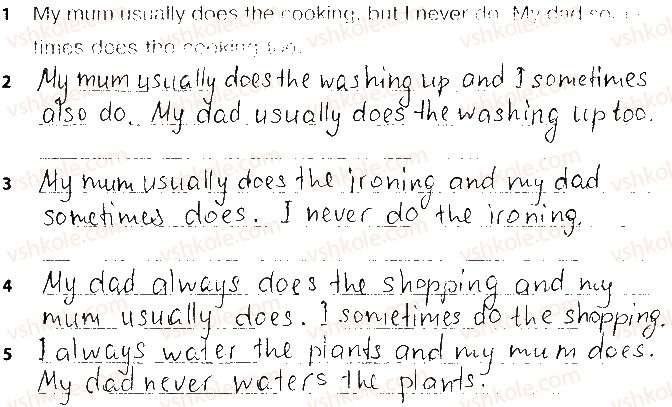 1 My mum usually does the cooking, but I never do. My dad so
times does the cooking too.
2 My mum usually does the washing up and I sometimes
also do. My dad usually does the washing up too.
3 My mum usually does the ironing and my dad
sometimes does. I never do the ironing.
4 My dad always does the shopping and my
mum usually does. I sometimes do the shopping.
5 I always water the plants and my mum does.
My dad never waters the plants.